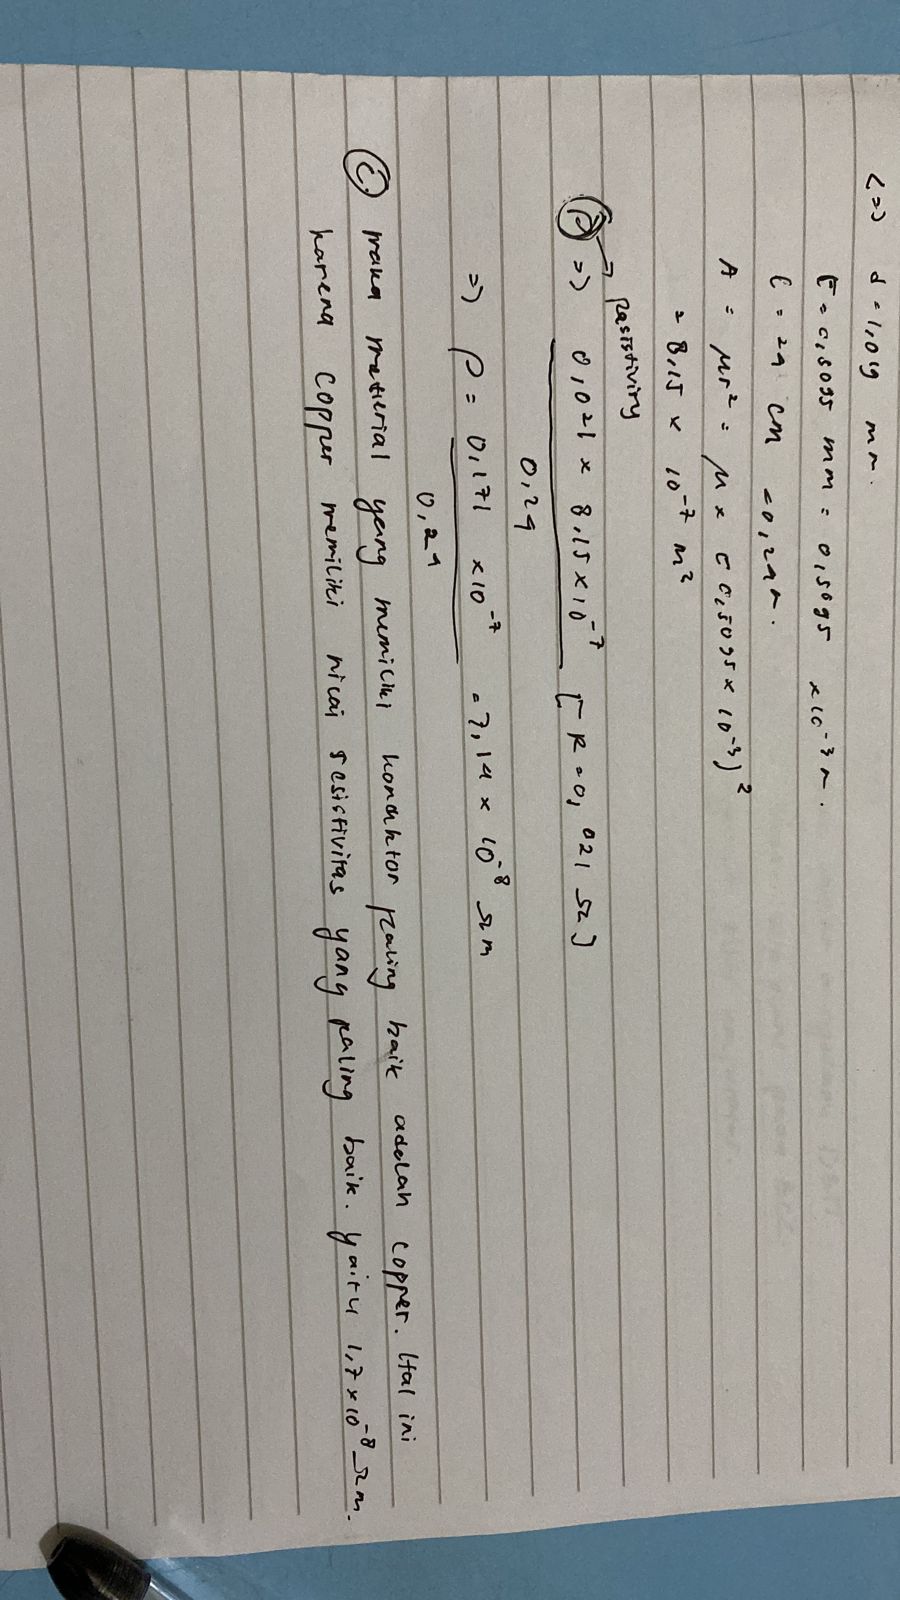 <=> d = 1,019 mm.
r = 0,5095 mm = 0,5095 × 10⁻³ m.
l = 24 cm = 0,24 m.
A = πr² = π × (0,5095 × 10⁻³)²
= 8,15 × 10⁻⁷ m²
resistivity
ρ => 0,021 × 8,15 × 10⁻⁷ [R = 0,021 Ω]
0,24
=> ρ = 0,171 × 10⁻⁷ = 7,14 × 10⁻⁸ Ωm
0,24
(C) maka material yang memiliki konduktor paling baik adalah copper. Hal ini
karena copper memiliki nilai resistivitas yang paling baik. yaitu 1,7 × 10⁻⁸ Ωm.